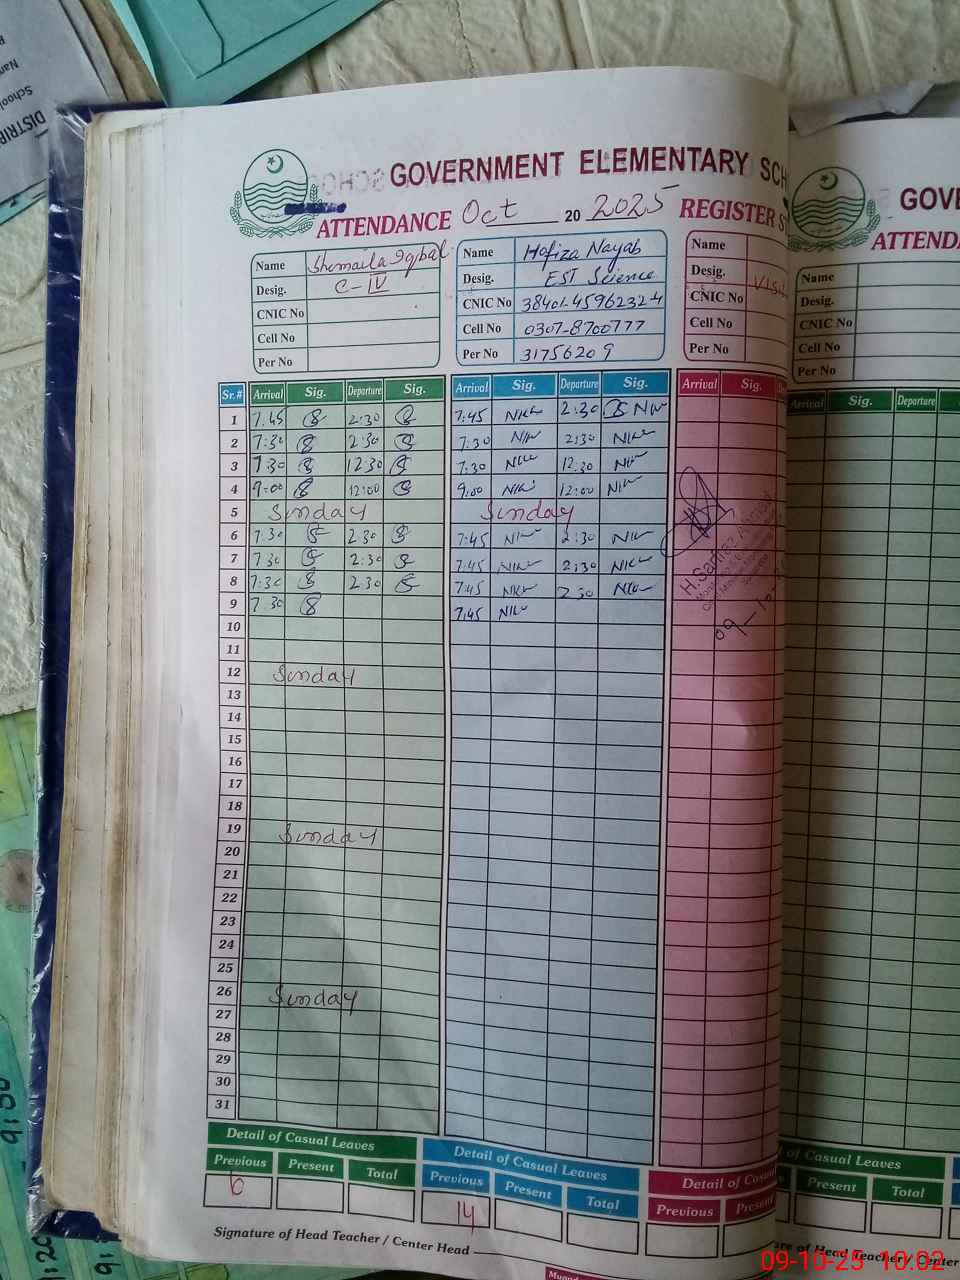 DISTRIB
Schoo
Nam
GOVERNMENT ELEMENTARY SCH
ATTENDANCE Oct 20 2025 REGISTER S
Name Shemaila Iqbal
Desig. C-IV
CNIC No
Cell No
Per No
Name Hafiza Nayab
Desig. EST Science
CNIC No 38401-4596232-4
Cell No 0307-8700777
Per No 31756209
Name
Desig. Visit
CNIC No
Cell No
Per No
Sr.# Arrival Sig. Departure Sig. Arrival Sig. Departure Sig. Arrival Sig.
1 7:45 2:30 7:45 2:30
2 7:30 2:30 7:30 2:30
3 7:30 12:30 7:30 12:30
4 9:00 12:00 9:00 12:00
5 Sunday Sunday
6 7:30 2:30 7:45 2:30
7 7:30 2:30 7:45 2:30
8 7:30 2:30 7:45 2:30
9 7:30 7:45
10
11
12 Sunday
13
14
15
16
17
18
19 Sunday
20
21
22
23
24
25
26 Sunday
27
28
29
30
31
09-10
Detail of Casual Leaves
Previous Present Total
6
Detail of Casual Leaves
Previous Present Total
14
Detail of Casua
Previous Present
Signature of Head Teacher / Center Head
GOVE
ATTENDA
Name
Desig.
CNIC No
Cell No
Per No
Arrival Sig. Departure
Casual Leaves
Present Total
re of Head Teacher / Center
9:30
09-10-25 10:02